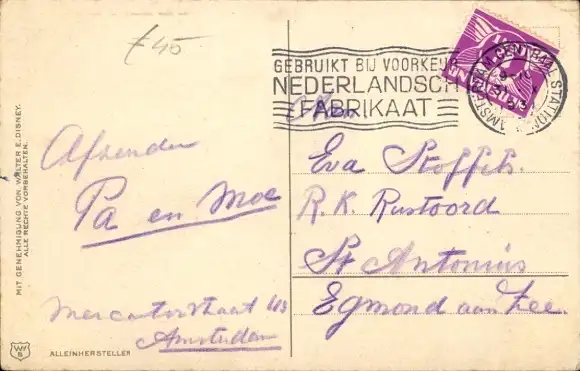 £45
GEBRUIKT BIJ VOORKEUR
NEDERLANDSCH
FABRIKAAT
AMSTERDAM CENTRAAL STATION
Afzender
Pa en Moe
Mercatorstraat 113
Amsterdam
Eva Stoffels.
R. K. Rustoord
St Antonius
Egmond aan Zee.
MIT GENEHMIGUNG VON WALTER E. DISNEY.
ALLE RECHTE VORBEHALTEN.
ALLEINHERSTELLER